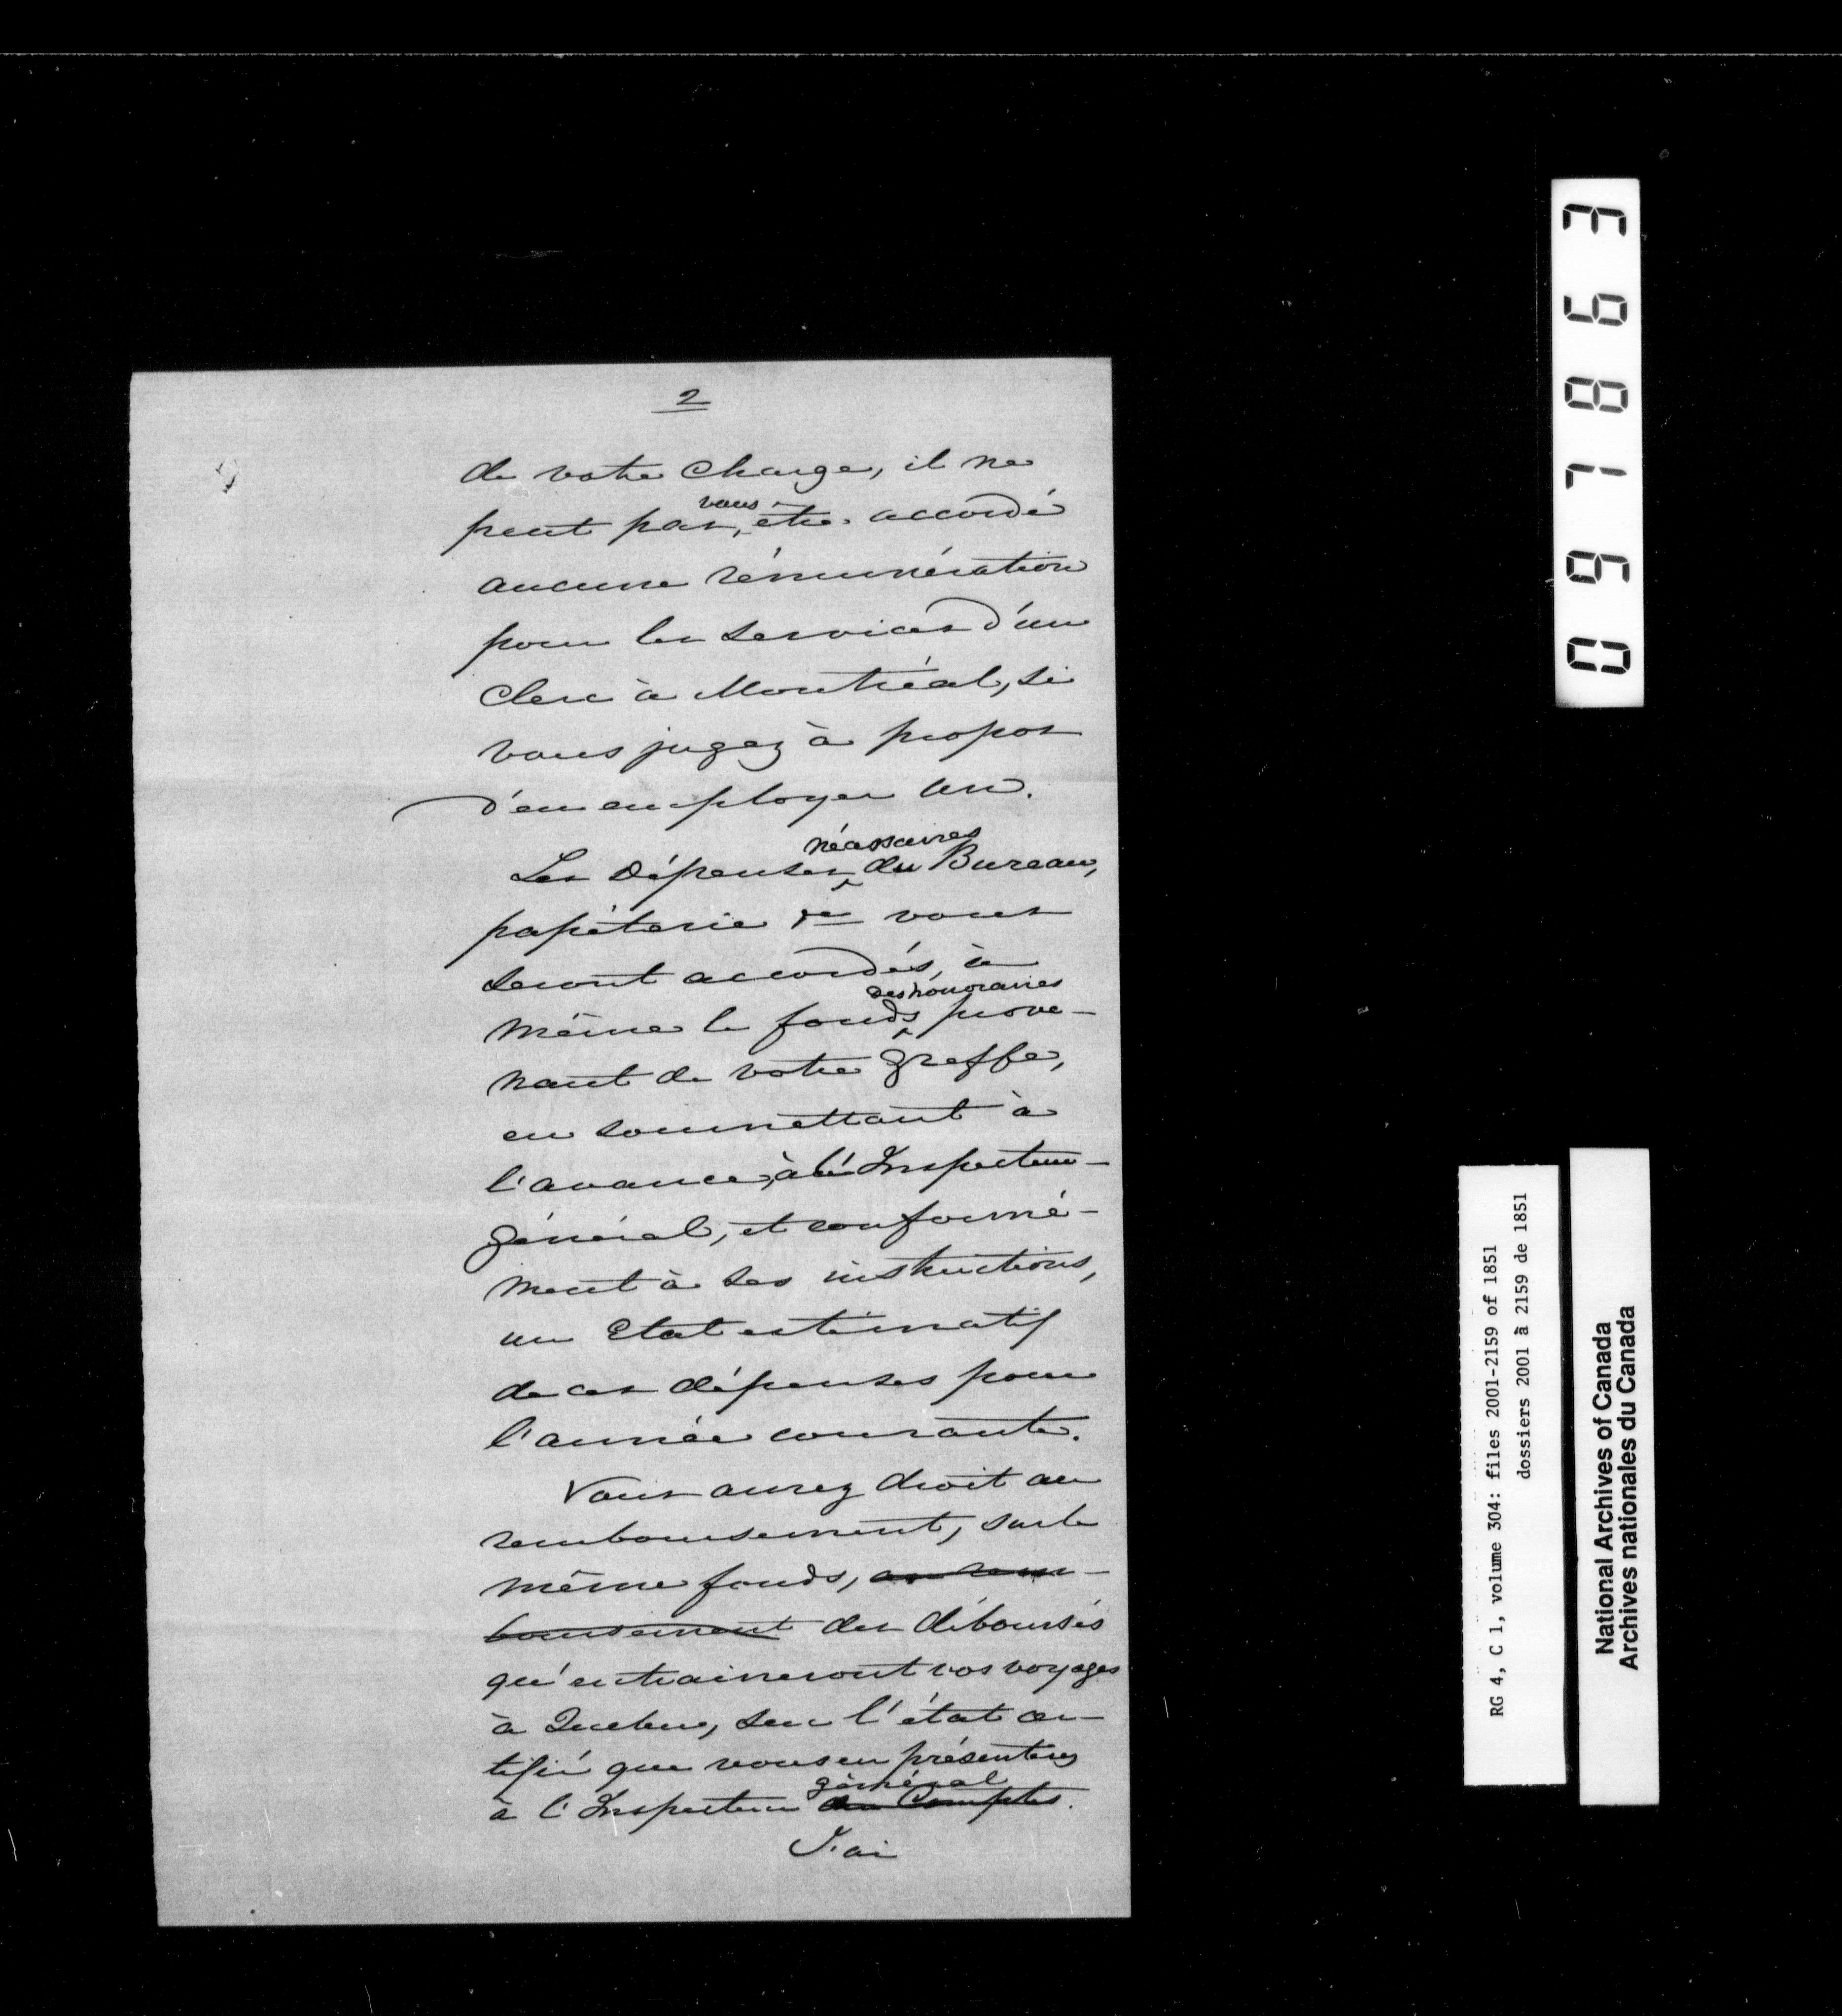 2
de votre charge, il ne
peut pas vous être accordé
aucune rémunération
pour les services d'un
Clerc à Montréal, si
vous jugez à propos
d'en employer un.
Les dépenses nécessaires du Bureau,
papèterie &c vous
seront accordés, à
même le fonds des honoraires prove-
nant de votre Greffe,
en soumettant à
l'avance, à l'Inspecteur-
Général, et conformé-
ment à ses instructions,
un Etat estimatif
de ces dépenses pour
l'année courante.
Vous aurez droit au
remboursement, sur le
même fonds, au rem-
boursement des déboursés
qu'entraineront vos voyages
à Quebec, sur l'état cer-
tifié que vous en présenterez
à l'Inspecteur général des Comptes.
J'ai
097863
RG 4, C 1, volume 304: files 2001-2159 of 1851
dossiers 2001 à 2159 de 1851
National Archives of Canada
Archives nationales du Canada